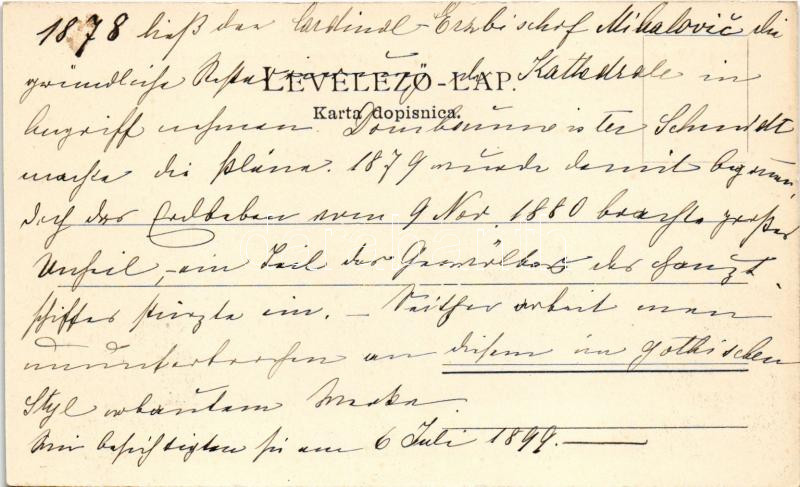 1878 ließ der Cardinal-Erzbischof Mihalovič die
gründliche Restaurierung der Kathedrale in
LEVELEZŐ-LAP.
Karta dopisnica.
Angriff nehmen. Dombaumeister Schmidt
machte die Pläne. 1879 wurde damit begonnen,
doch das Erdbeben vom 9 Nov. 1880 brachte großes
Unheil, – ein Teil des Gewölbes des Haupt-
schiffes stürzte ein. – Seither arbeit man
ununterbrochen an diesem im gothischen
Styl erbautem Werke.
Wir besichtigten sie am 6 Juli 1899.